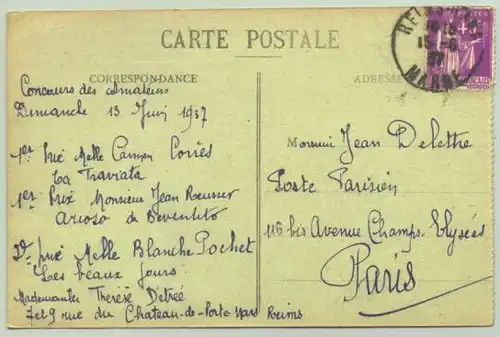 CARTE POSTALE
CORRESPONDANCE
ADRESSE
Concours des amateurs
Dimanche 13 Juin 1937
1er Prix Melle Carmen Corriès
La Traviata
1er Prix Monsieur Jean
Arioso de Benvenuto
2d prix Melle Blanche Pochet
Les beaux jours
Mademoiselle Thérèse Détrée
7 et 9 rue du Chateau-de-Porte Mars Reims
Monsieur Jean Delettre
Poste Parisien
116 bis Avenue Champs Elysées
Paris
MARNE